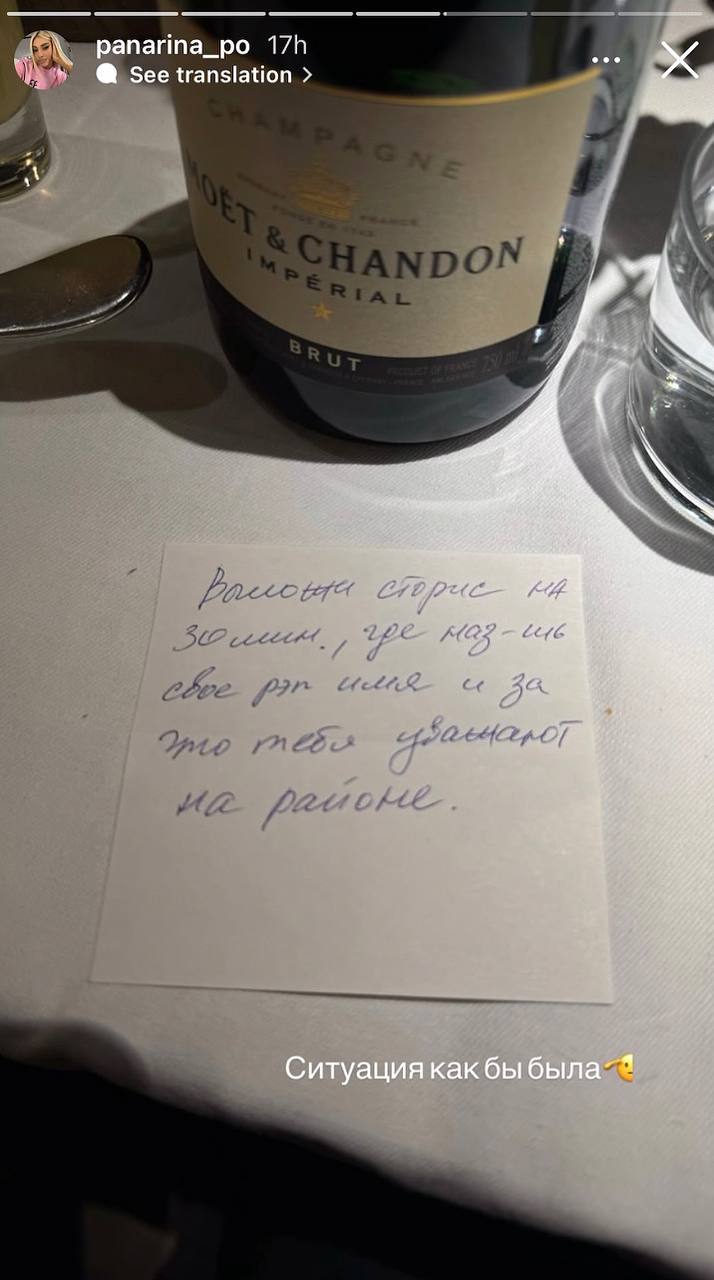 panarina_po 17h
See translation
CHAMPAGNE
MOËT & CHANDON
IMPÉRIAL
BRUT
PRODUCT OF FRANCE 750 ml
Выложи сторис на
30 мин., где наз-шь
свое рэп имя и за
это тебя уважают
на районе.
Ситуация как бы была🫡